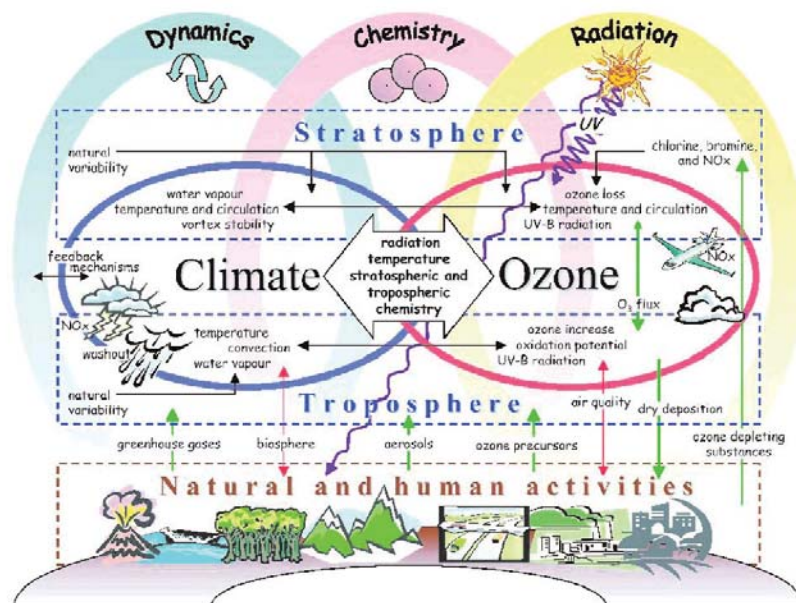 Dynamics
Chemistry
Radiation
UV
Stratosphere
natural
variability
chlorine, bromine,
and NOx
water vapour
temperature and circulation
vortex stability
ozone loss
temperature and circulation
UV-B radiation
radiation
temperature
stratospheric and
tropospheric
chemistry
feedback
mechanisms
Climate
Ozone
NOx
O₃ flux
NOx
washout
temperature
convection
water vapour
ozone increase
oxidation potential
UV-B radiation
natural
variability
Troposphere
air quality
dry deposition
greenhouse gases
biosphere
aerosols
ozone precursors
ozone depleting
substances
Natural and human activities